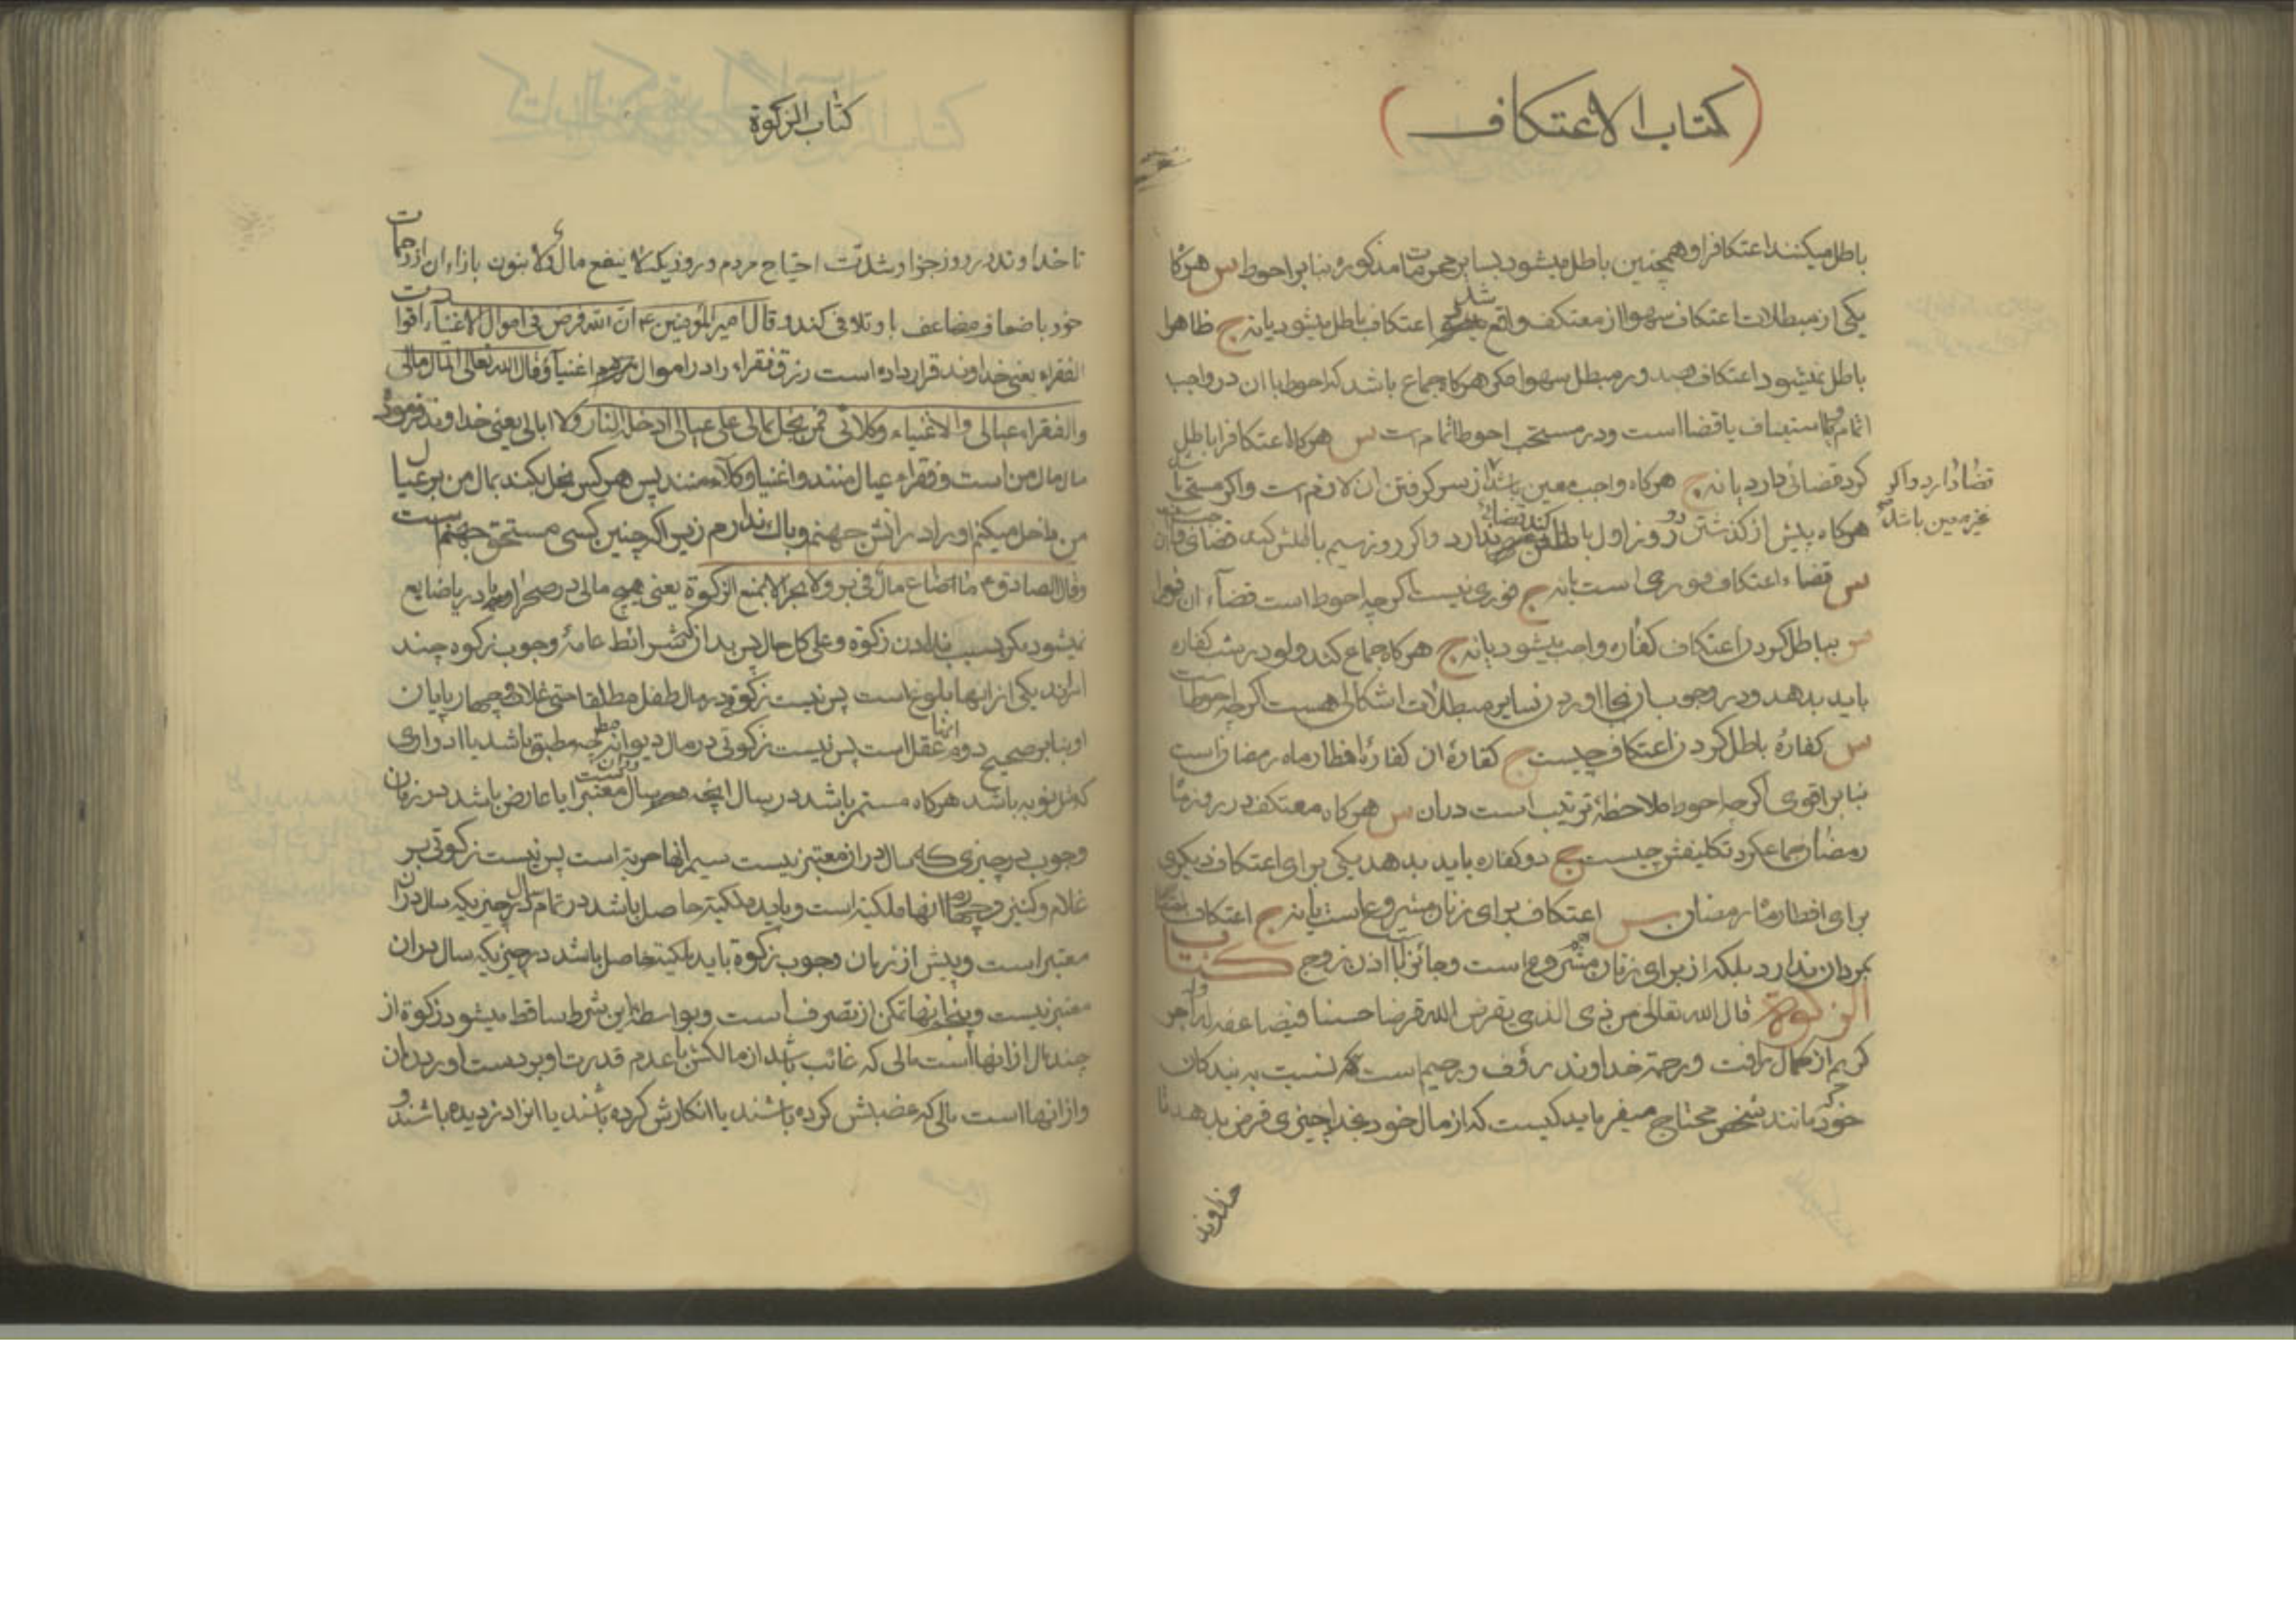 (كتاب الاعتكاف)
باطل میکنند اعتکافرا و همچنین باطل میشود بسایر محرمات مذکوره بنا بر احوط س هرکاه
یکی از مبطلات اعتکاف سهوا از معتکف واقع شد اعتکاف باطل میشود یا نه ج ظاهرا
باطل نمیشود اعتکاف بصدور مبطل سهوا مکر هرکاه جماع باشد که احوط با ان در واجب
اتمام و استیناف یا قضا است و در مستحب احوط اتمام است س هرکاه اعتکافرا باطل
کرد قضائی دارد یا نه ج هرکاه واجب معین باشد از سر کرفتن ان لازم است واکر مستحب
قضا دارد واکر
غیر معین باشد
هرکاه پیش از کذشتن دو روز اول باطلش کند قضائی ندارد واکر روز سیم باطلش کند قضائی
س قضاء اعتکاف فوری است یا نه ج فوری نیست اکرچه احوط است قضاء ان فورا
س بباطل کردن اعتکاف کفاره واجب میشود یا نه ج هرکاه جماع کند ولو در شب کفاره
باید بدهد و در وجوب ان بجا اوردن سایر مبطلات اشکالی هست اکرچه احوط است
س کفارهٔ باطل کردن اعتکاف چیست ج کفارهٔ ان کفارهٔ افطار ماه رمضان است
بنابر اقوی اکرچه احوط ملاحظهٔ ترتیب است در ان س هرکاه معتکف در روز ماه
رمضان جماع کرد تکلیفش چیست ج دو کفاره باید بدهد یکی برای اعتکاف دیکری
برای افطار ماه رمضان س اعتکاف برای زنان مشروع است یا نه ج اعتکاف
بمردان ندارد بلکه از برای زنان هم مشروع است و جائز با اذن زوج کتاب
الزکوة قال الله تعالی من ذی الذی یقرض الله قرضا حسنا فیضاعفه له وله اجر
کریم از کمال رافت و رحمة خداوند رؤف و رحیم است که نسبت به بندکان
خود مانند شخص محتاج میفرماید کیست که از مال خود بخدا چیزی قرض بدهد تا
خداوند
كتاب الزكوة
تا خداوند در روز جزا و شدت احتیاج مردم و روزیکه لا ینفع مال و لا بنون بازاء ان از رحمات
خود باضعاف مضاعف با و تلافی کند و قال امیر المؤمنین ع ان الله فرض فی اموال الاغنیاء اقوات
الفقراء یعنی خداوند قرار داده است رزق فقراء را در اموال اغنیا و قال الله تعالی المال مالی
والفقراء عیالی والاغنیاء وکلائی فمن بخل بمالی علی عیالی ادخله النار ولا ابالی یعنی خداوند فرمود
مال مال من است و فقراء عیال منند و اغنیا وکلاء منند پس هر کس بخل بکند بمال من بر عیال
من داخل میکنم او را در اتش جهنم و باک ندارم زیرا که چنین کسی مستحق جهنم است
وقال الصادق ع ما ضاع مال فی بر ولا بحر الا بمنع الزکوة یعنی هیچ مالی در صحرا و در دریا ضایع
نمیشود مکر بسبب ندادن زکوة و علی کل حال پس بدان که شرائط عامهٔ وجوب زکوة چند
امرند یکی از انها بلوغ است پس نیست زکوتی در مال طفل مطلقا حتی غلات و چهارپایان
او بنا بر صحیح دوم انها عقل است پس نیست زکوتی در مال دیوانه مطبق باشد یا ادواری
که بنوبه باشد هرکاه مستمر باشد در سال انچه سال در ان معتبر است یا عارض باشد در زمان
وجوب در چیزی که سال در ان معتبر نیست سیم انها حریة است پس نیست زکوتی بر
غلام و کنیز و چهارم انها ملکیة است و باید ملکیة حاصل باشد در تمام سال در چیزیکه سال در ان
معتبر است و پیش از زمان وجوب زکوة باید ملکیة حاصل باشد در چیزیکه سال در ان
معتبر نیست و پنجم انها تمکن از تصرف است و بواسطهٔ این شرط ساقط میشود زکوة از
چند مال از انها است مالی که غائب باشد از مالکش با عدم قدرت او بر بدست اوردن ان
و از انها است مالی که غصبش کرده باشند یا انکارش کرده باشند یا انرا دزدیده باشند و